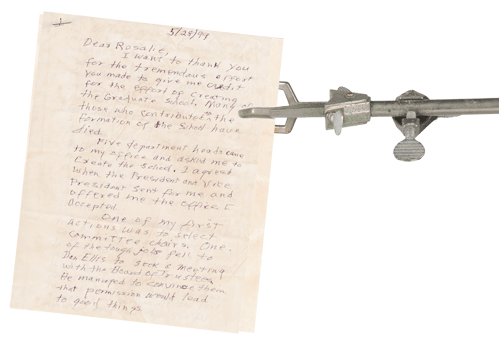 5/28/99
Dear Rosalie,
I want to thank you
for the tremendous effort
you made to give me credit
for the effort of creating
the Graduate School. Many of
those who contributed in the
formation of the School have
died.
Five department heads came
to my office and asked me to
create the school. I agreed
when the President and Vice
President sent for me and
offered me the office I
accepted
One of my first
actions was to select
committee chairs. One
of the tough jobs fell to
Dan Ellis to seek a meeting
with the Board of Trustees
He managed to convince them
that permission would lead
to good things